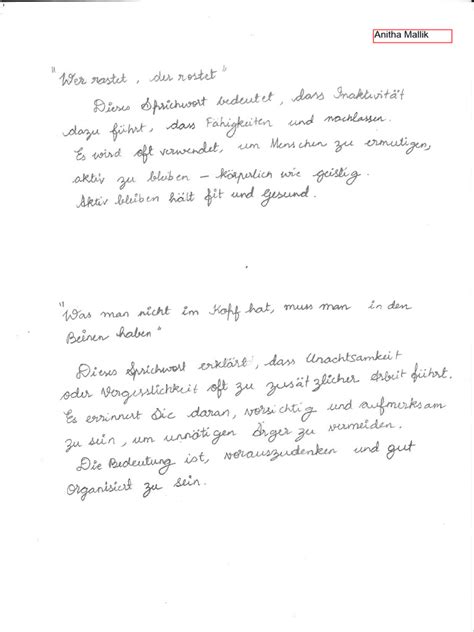 Anitha Mallik
"Wer rastet, der rostet"
Dieses Sprichwort bedeutet, dass Inaktivität
dazu führt, dass Fähigkeiten und nachlassen.
Es wird oft verwendet, um Menschen zu ermutigen,
aktiv zu bleiben – körperlich wie geistig.
Aktiv bleiben hält fit und Gesund.
"Was man nicht im Kopf hat, muss man in den
Beinen haben"
Dieses Sprichwort erklärt, dass Unachtsamkeit
oder Vergesslichkeit oft zu zusätzlicher Arbeit führt.
Es errinnert Sie daran, vorsichtig und aufmerksam
zu sein, um unnötigen Ärger zu vermeiden.
Die Bedeutung ist, vorauszudenken und gut
organisiert zu sein.